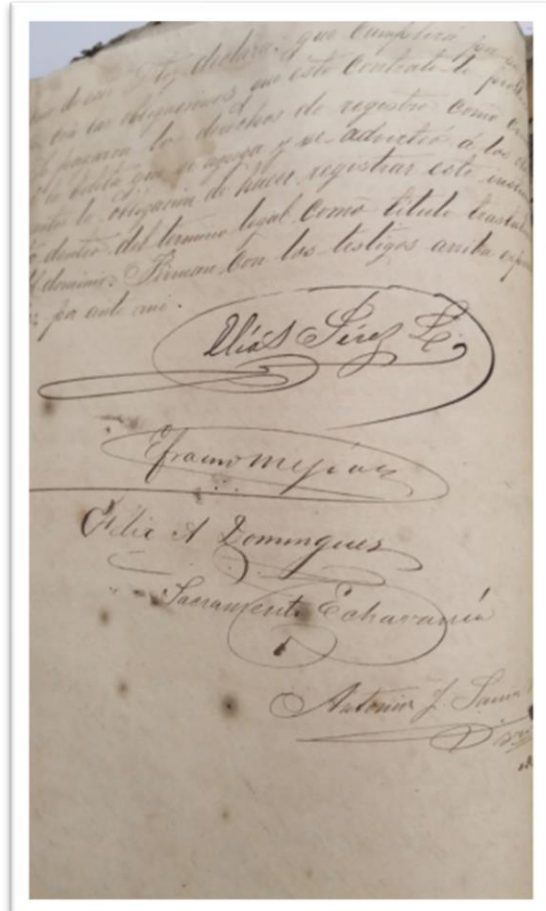 de eso y declara: que cumplirá por
con las obligaciones que este Contrato le
pagaron los derechos de registro como
la boleta que se agrega y se advirtió á los
la obligación de hacer registrar este
dentro del termino legal como titulo
dominio. Firman con los testigos arriba
por ante mi.
Elías Pérez L.
Efraim Mejía
Félix A Domingues
Sacramento Echavarría
Antonio J.